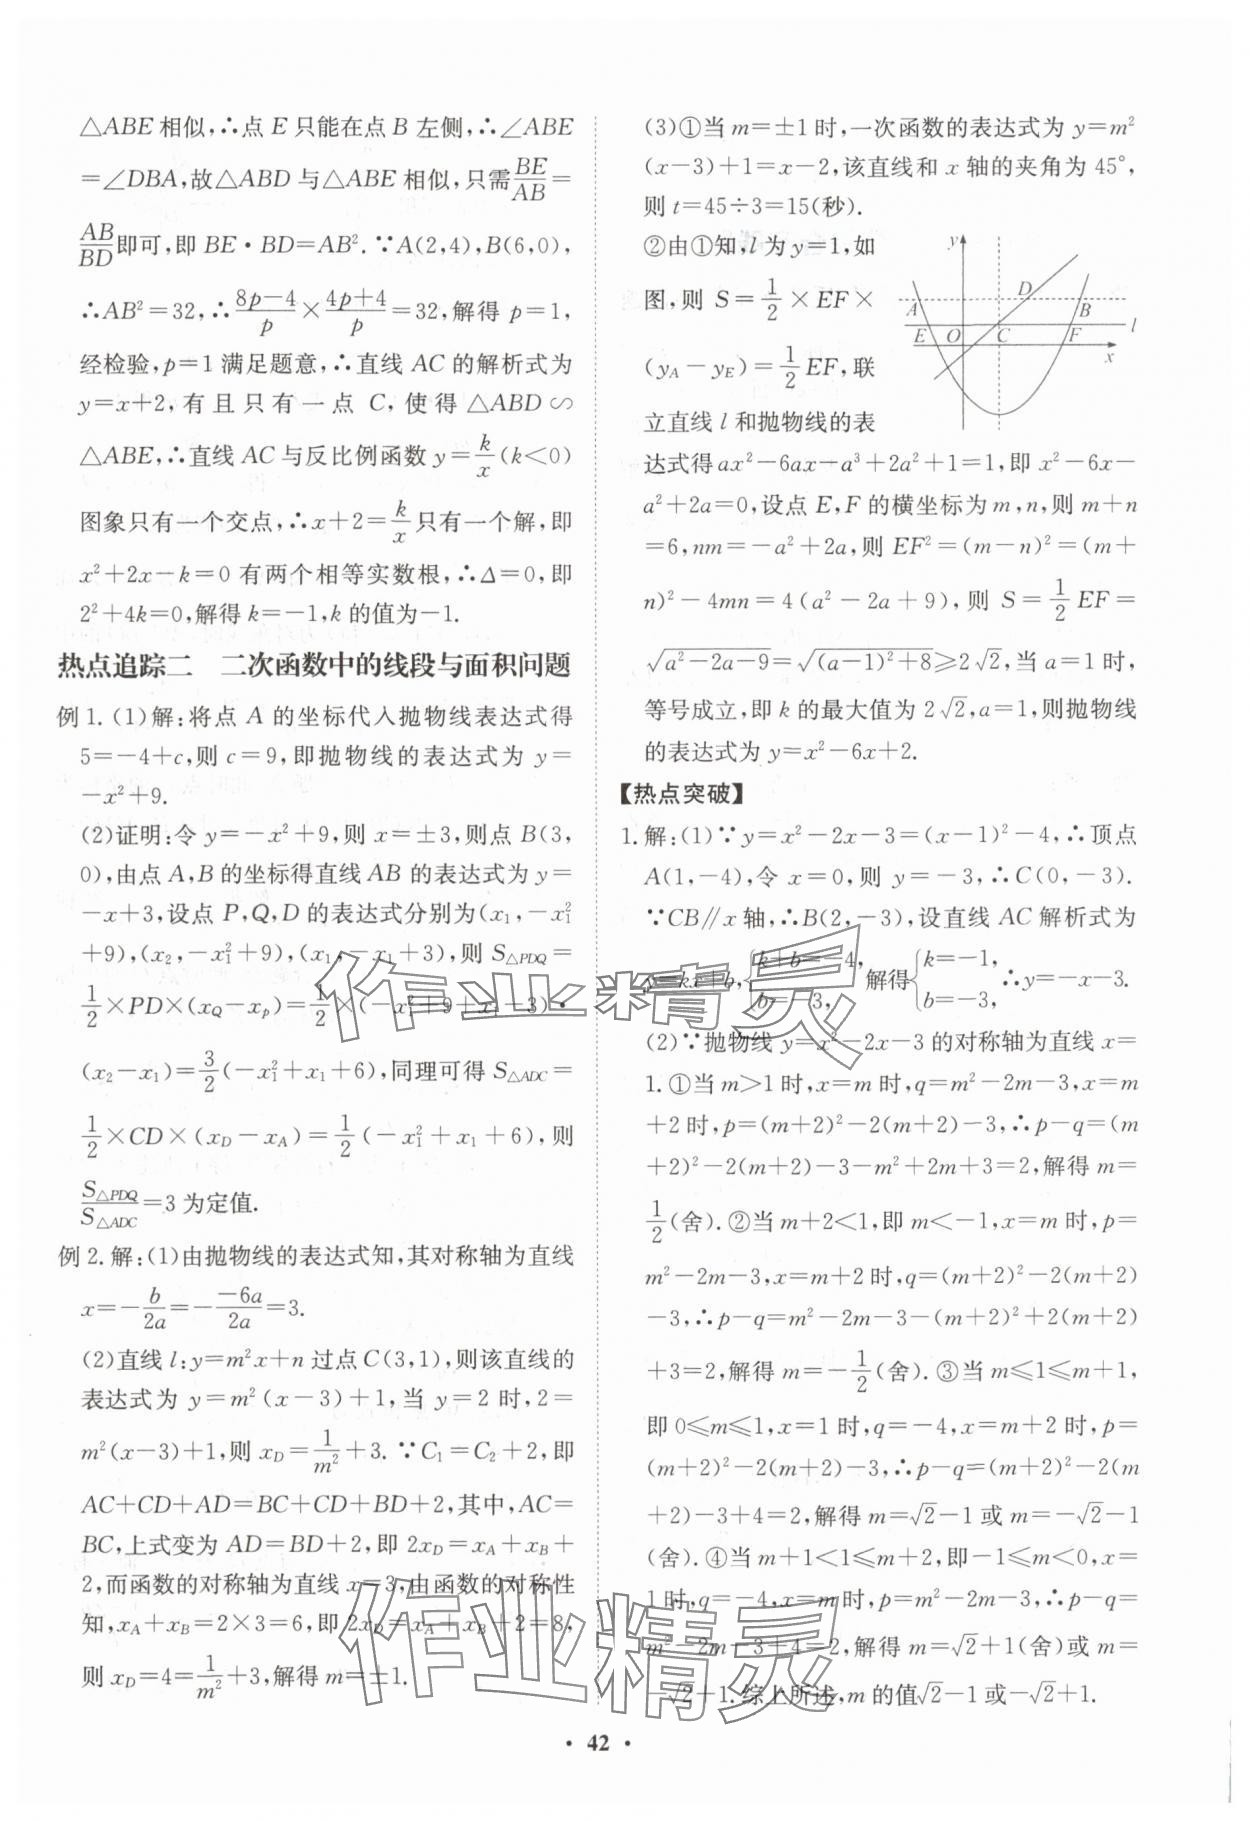 △ABE相似,∴点E只能在点B左侧,∴∠ABE
=∠DBA,故△ABD与△ABE相似,只需BE/AB=
AB/BD即可,即BE·BD=AB².∵A(2,4),B(6,0),
∴AB²=32,∴(8p-4)/p×(4p+4)/p=32,解得p=1,
经检验,p=1满足题意,∴直线AC的解析式为
y=x+2,有且只有一点C,使得△ABD∽
△ABE,∴直线AC与反比例函数y=k/x(k<0)
图象只有一个交点,∴x+2=k/x只有一个解,即
x²+2x-k=0有两个相等实数根,∴Δ=0,即
2²+4k=0,解得k=-1,k的值为-1.
热点追踪二 二次函数中的线段与面积问题
例1.(1)解:将点A的坐标代入抛物线表达式得
5=-4+c,则c=9,即抛物线的表达式为y=
-x²+9.
(2)证明:令y=-x²+9,则x=±3,则点B(3,
0),由点A,B的坐标得直线AB的表达式为y=
-x+3,设点P,Q,D的表达式分别为(x₁,-x₁²
+9),(x₂,-x₁²+9),(x₁,-x₁+3),则S△PDQ=
1/2×PD×(xQ-xp)=1/2×(-x₁²+9+x₁-3)·
(x₂-x₁)=3/2(-x₁²+x₁+6),同理可得S△ADC=
1/2×CD×(xD-xA)=1/2(-x₁²+x₁+6),则
S△PDQ/S△ADC=3为定值.
例2.解:(1)由抛物线的表达式知,其对称轴为直线
x=-b/2a=-(-6a)/2a=3.
(2)直线l:y=m²x+n过点C(3,1),则该直线的
表达式为y=m²(x-3)+1,当y=2时,2=
m²(x-3)+1,则xD=1/m²+3.∵C₁=C₂+2,即
AC+CD+AD=BC+CD+BD+2,其中,AC=
BC,上式变为AD=BD+2,即2xD=xA+xB+
2,而函数的对称轴为直线x=3,由函数的对称性
知,xA+xB=2×3=6,即2xD=xA+xB+2=8,
则xD=4=1/m²+3,解得m=±1.
(3)①当m=±1时,一次函数的表达式为y=m²
(x-3)+1=x-2,该直线和x轴的夹角为45°,
则t=45÷3=15(秒).
②由①知,l为y=1,如
图,则S=1/2×EF×
(yA-yE)=1/2EF,联
立直线l和抛物线的表
y
D
A
B
E
O
C
F
l
x
达式得ax²-6ax-a³+2a²+1=1,即x²-6x-
a²+2a=0,设点E,F的横坐标为m,n,则m+n
=6,nm=-a²+2a,则EF²=(m-n)²=(m+
n)²-4mn=4(a²-2a+9),则S=1/2EF=
√(a²-2a-9)=√((a-1)²+8)≥2√2,当a=1时,
等号成立,即k的最大值为2√2,a=1,则抛物线
的表达式为y=x²-6x+2.
【热点突破】
1.解:(1)∵y=x²-2x-3=(x-1)²-4,∴顶点
A(1,-4),令x=0,则y=-3,∴C(0,-3).
∵CB∥x轴,∴B(2,-3),设直线AC解析式为
y=kx+b,{k+b=-4, b=-3,解得{k=-1, b=-3,∴y=-x-3.
(2)∵抛物线y=x²-2x-3的对称轴为直线x=
1.①当m>1时,x=m时,q=m²-2m-3,x=m
+2时,p=(m+2)²-2(m+2)-3,∴p-q=(m
+2)²-2(m+2)-3-m²+2m+3=2,解得m=
1/2(舍).②当m+2<1,即m<-1,x=m时,p=
m²-2m-3,x=m+2时,q=(m+2)²-2(m+2)
-3,∴p-q=m²-2m-3-(m+2)²+2(m+2)
+3=2,解得m=-1/2(舍).③当m≤1≤m+1,
即0≤m≤1,x=1时,q=-4,x=m+2时,p=
(m+2)²-2(m+2)-3,∴p-q=(m+2)²-2(m
+2)-3+4=2,解得m=√2-1或m=-√2-1
(舍).④当m+1<1≤m+2,即-1≤m<0,x=
1时,q=-4,x=m时,p=m²-2m-3,∴p-q=
m²-2m-3+4=2,解得m=√2+1(舍)或m=
-√2+1.综上所述,m的值√2-1或-√2+1.
作业精灵
作业精灵
· 42 ·